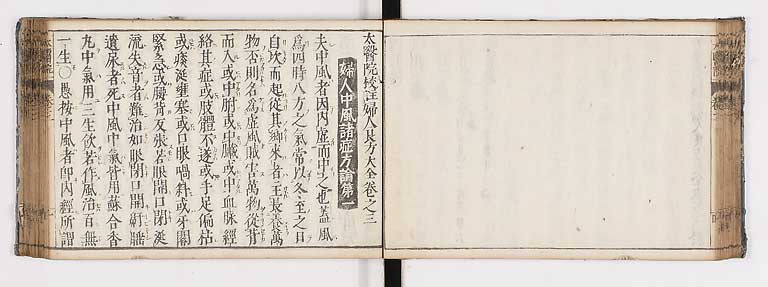 太醫院校註婦人良方大全卷之三
婦人中風諸症方論第一
夫中風者因內虛而中之也蓋風
爲四時八方之氣常以冬至之日
自坎而起從其鄉來者主長養萬
物否則名爲虛風賊害萬物從背
而入或中腑或中臟或中血脉經
絡其症或肢體不遂或手足偏枯
或痰涎壅塞或口眼喎斜或牙關
緊急或腰背反張若眼開口閉涎
流失音者難治如眼閉口開鼾睡
遺尿者死中風中氣皆用蘇合香
丸中氣用三生飲若作風治百無
一生〇愚按中風者卽內經所謂